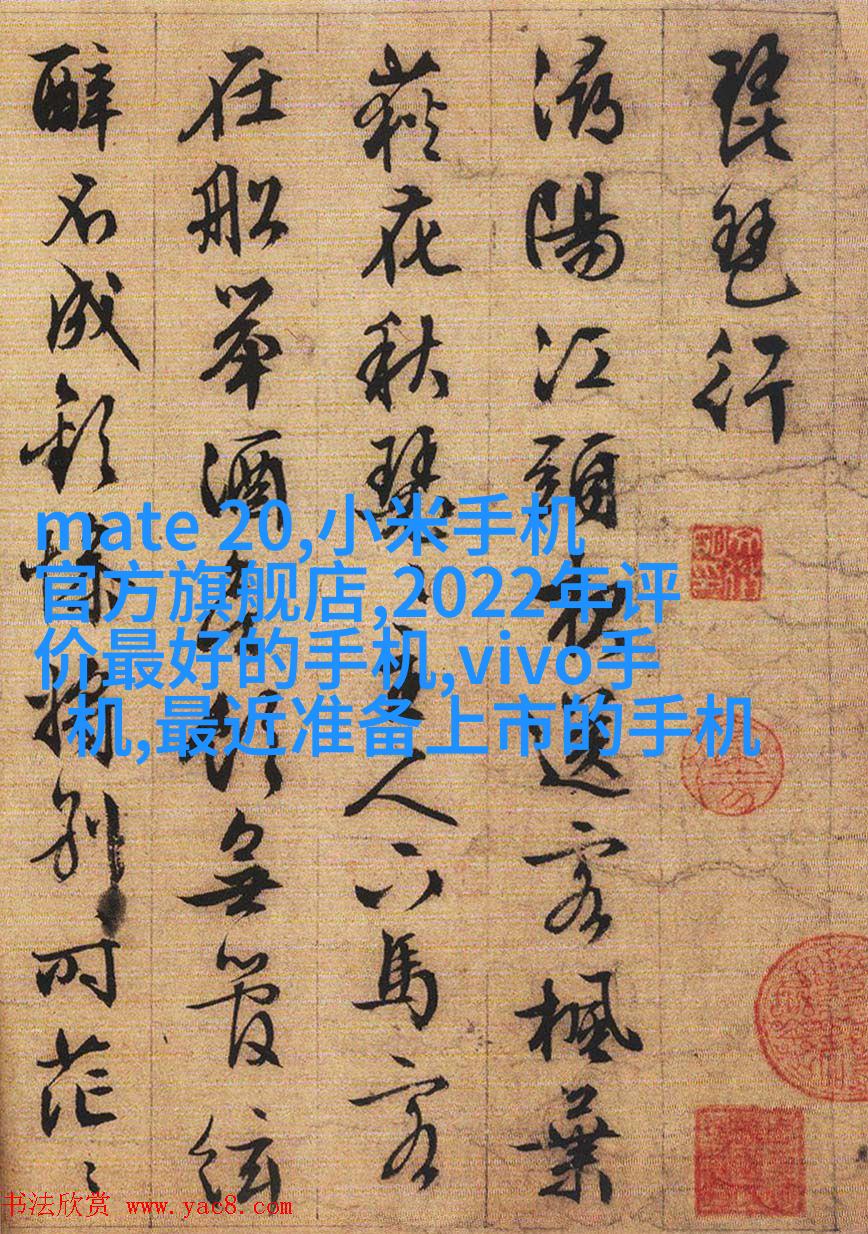 琵琶行
潯陽江頭夜送客楓葉
荻花秋瑟々主人下馬客
在船舉酒欲飲無管絃
醉不成歡慘將別々时茫々
mate 20,小米手机
官方旗舰店,2022年评
价最好的手机,vivo手
机,最近准备上市的手机
书法欣赏 www.yac8.com